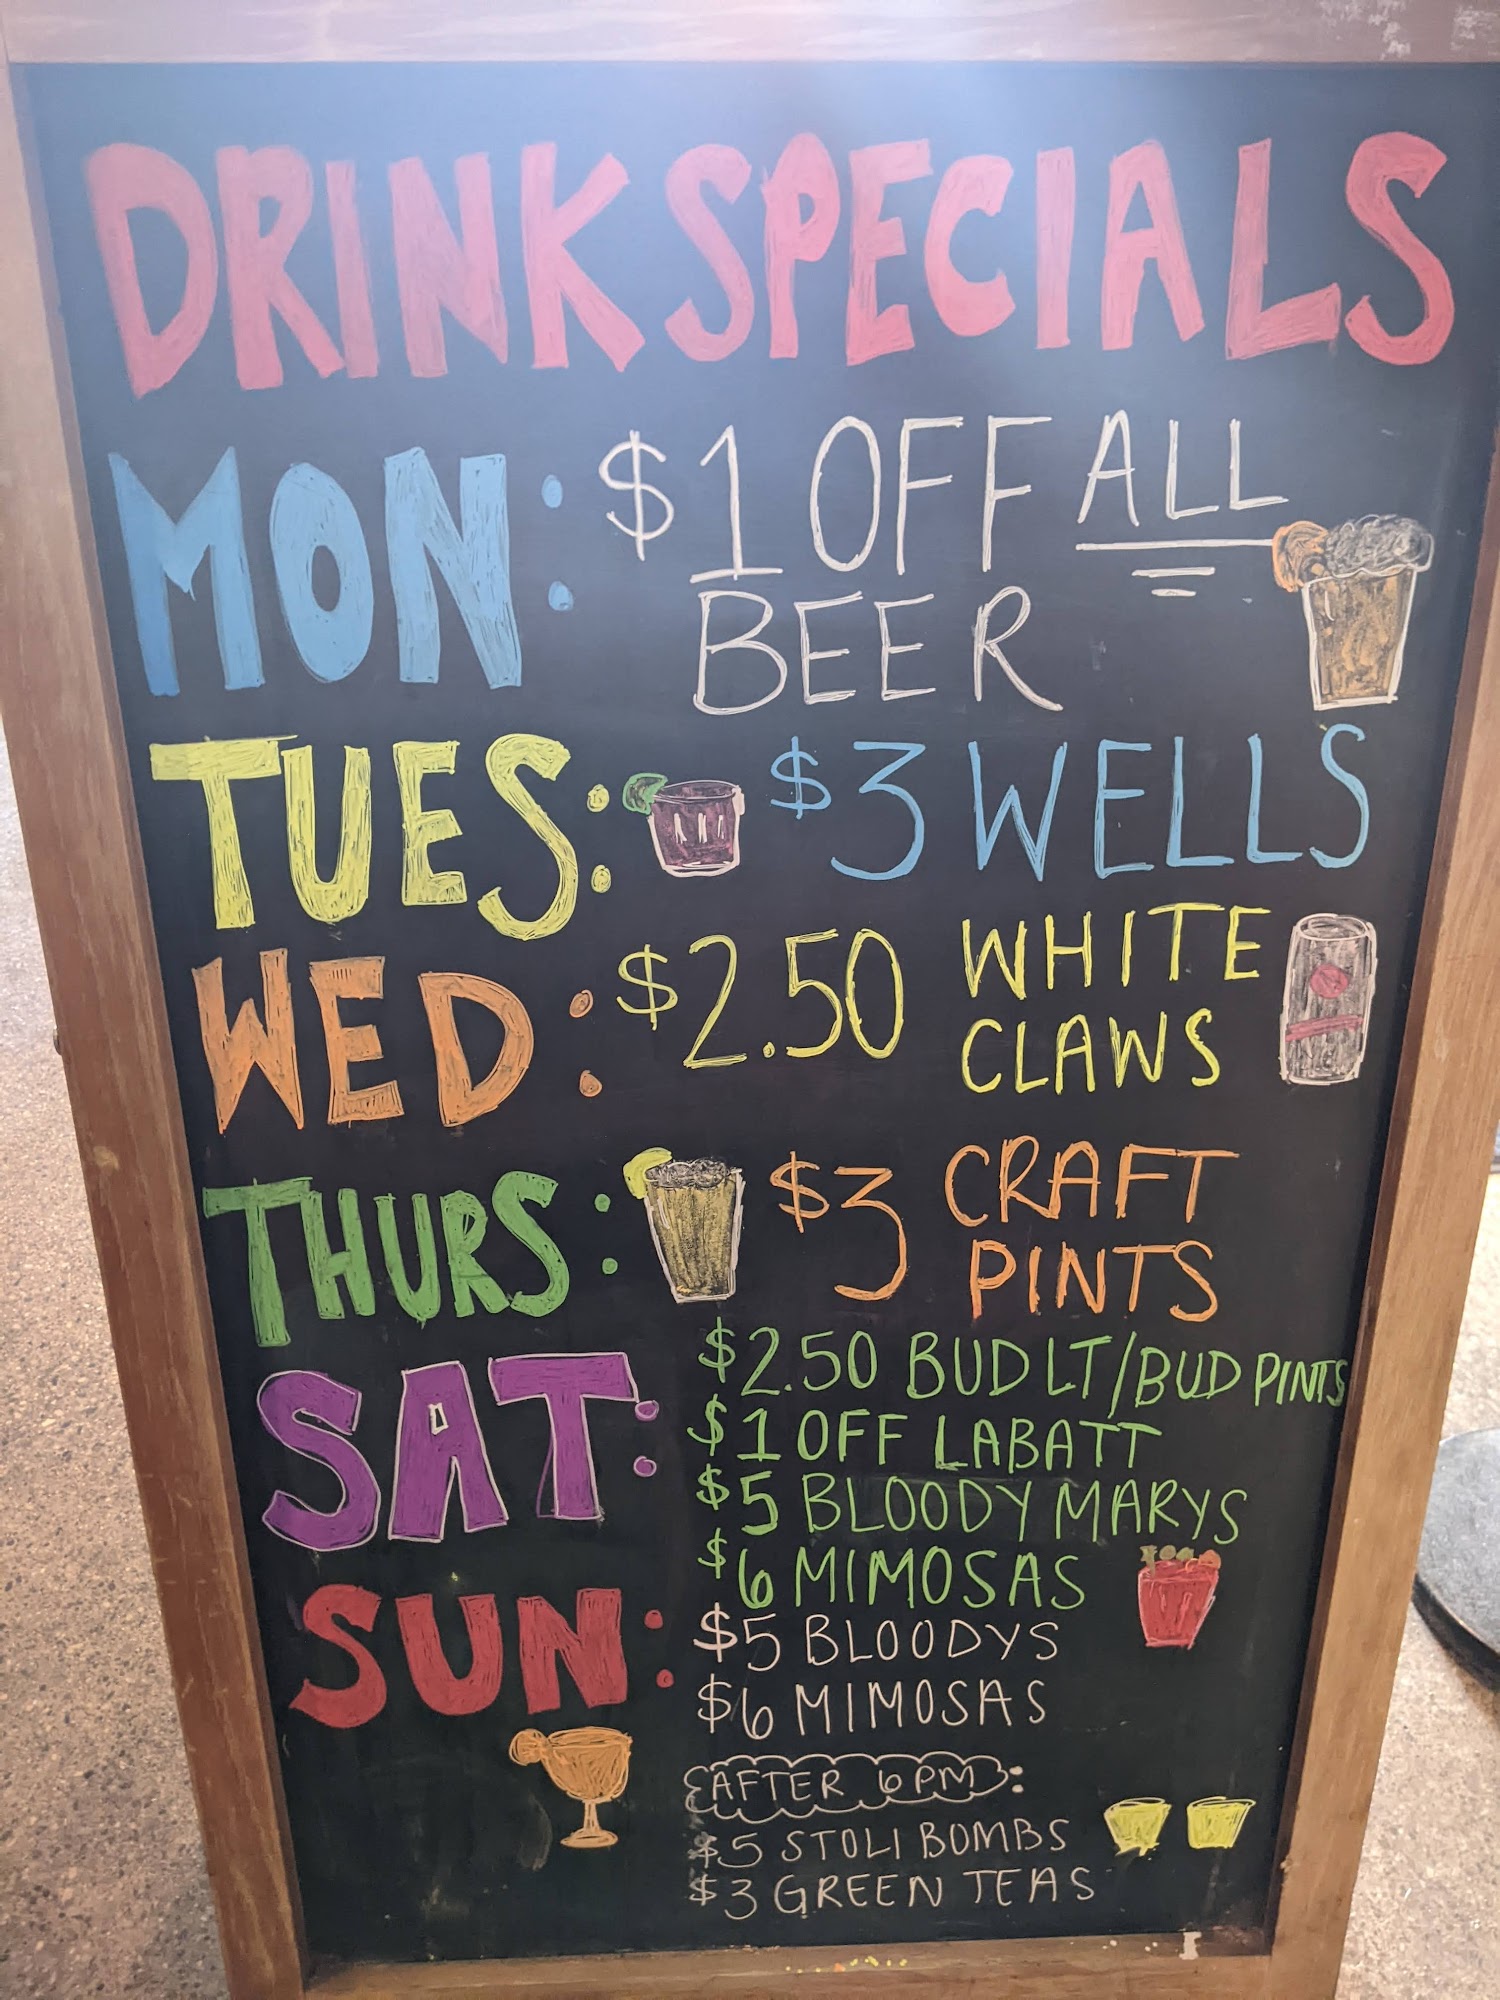 DRINK SPECIALS
MON: $1 OFF ALL
BEER
TUES: $3 WELLS
WED: $2.50 WHITE
CLAWS
THURS: $3 CRAFT
PINTS
SAT: $2.50 BUD LT/BUD PINTS
$1 OFF LABATT
$5 BLOODY MARYS
$6 MIMOSAS
SUN: $5 BLOODYS
$6 MIMOSAS
AFTER 6PM:
$5 STOLI BOMBS
$3 GREEN TEAS